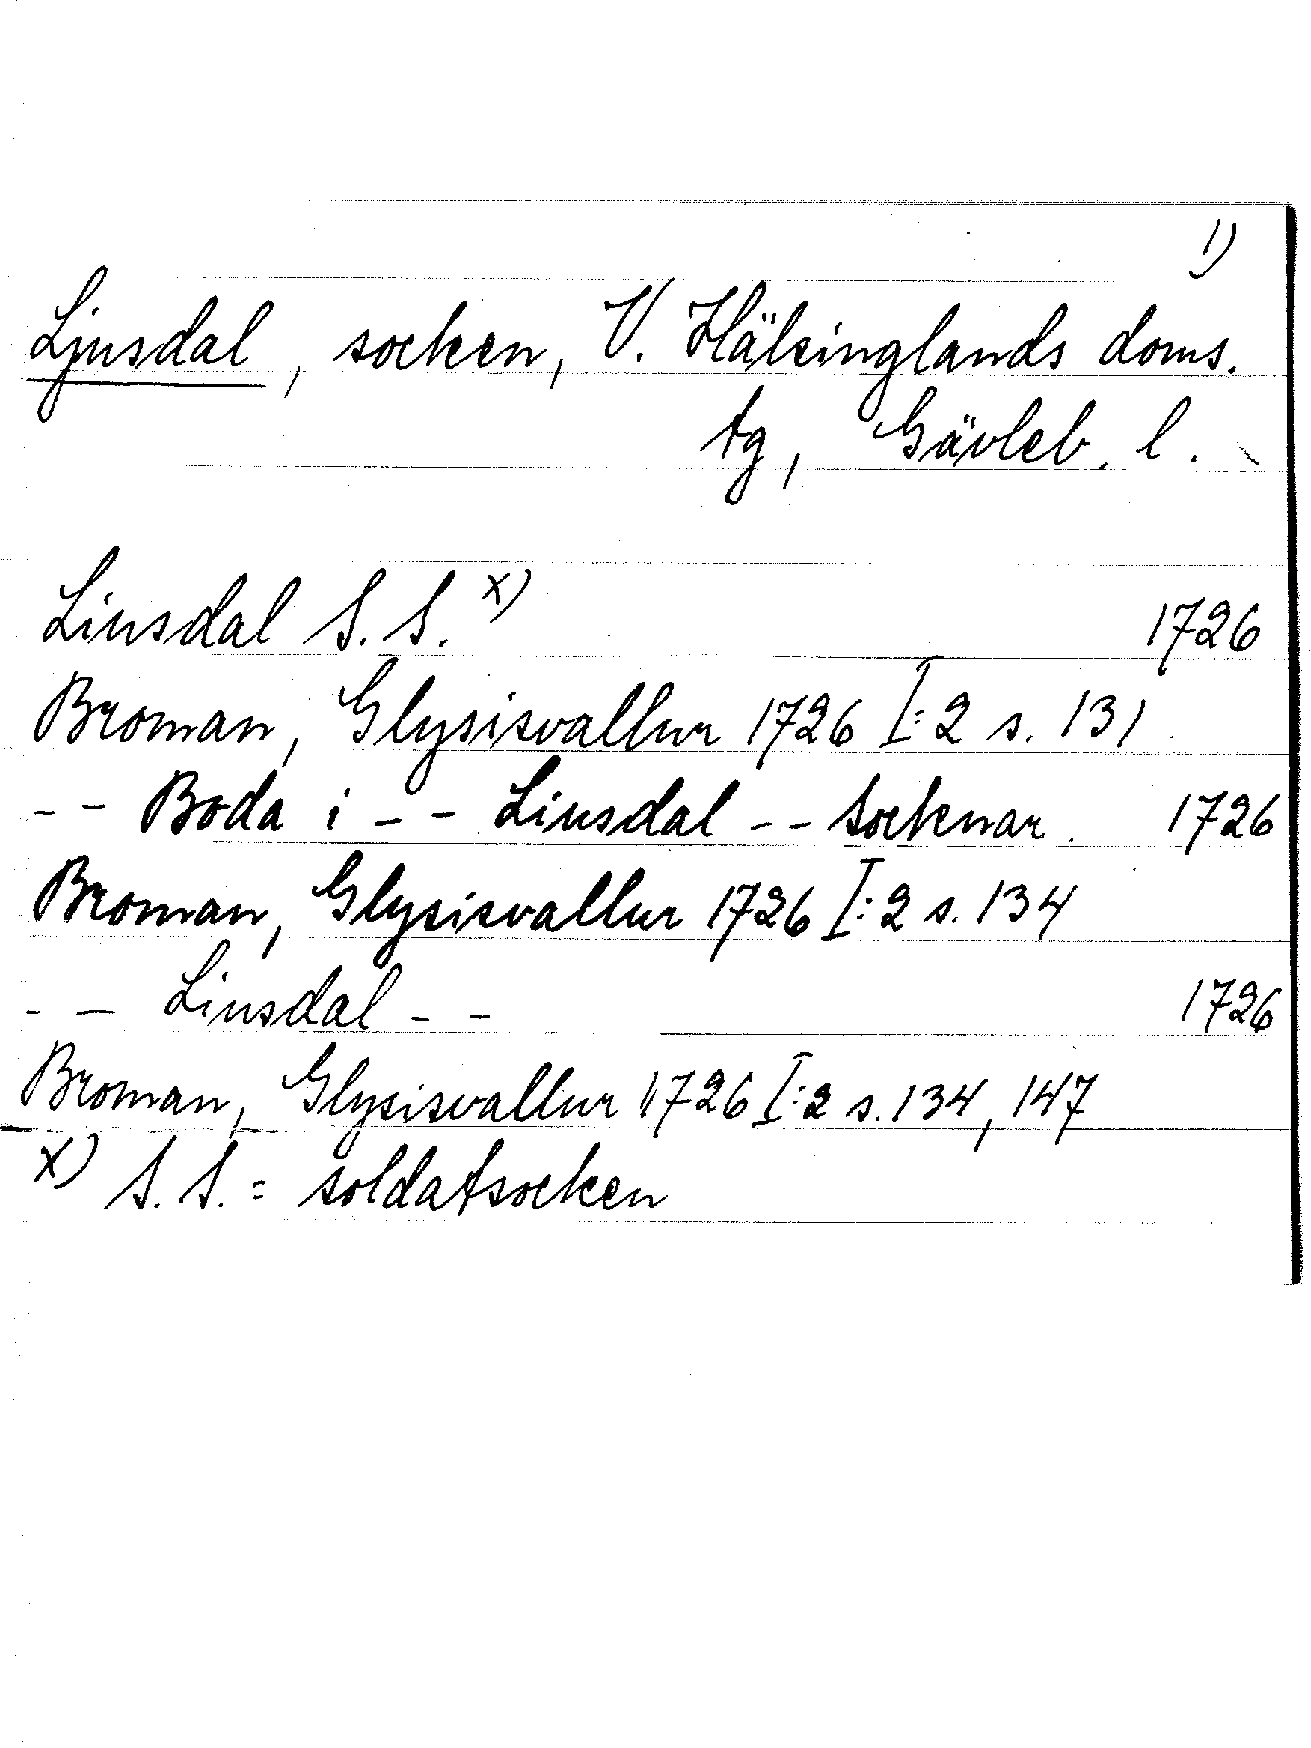 1)
Ljusdal, socken, V. Hälsinglands doms.
tg, Gävleb. l.
Liusdal S. S. x) 1726
Broman, Glysisvallur 1726 I:2 s. 131
-- Boda i -- Liusdal -- Socknar 1726
Broman, Glysisvallur 1726 I:2 s. 134
-- Liusdal -- 1726
Broman, Glysisvallur 1726 I:2 s. 134, 147
x) S. S. = soldatsocken